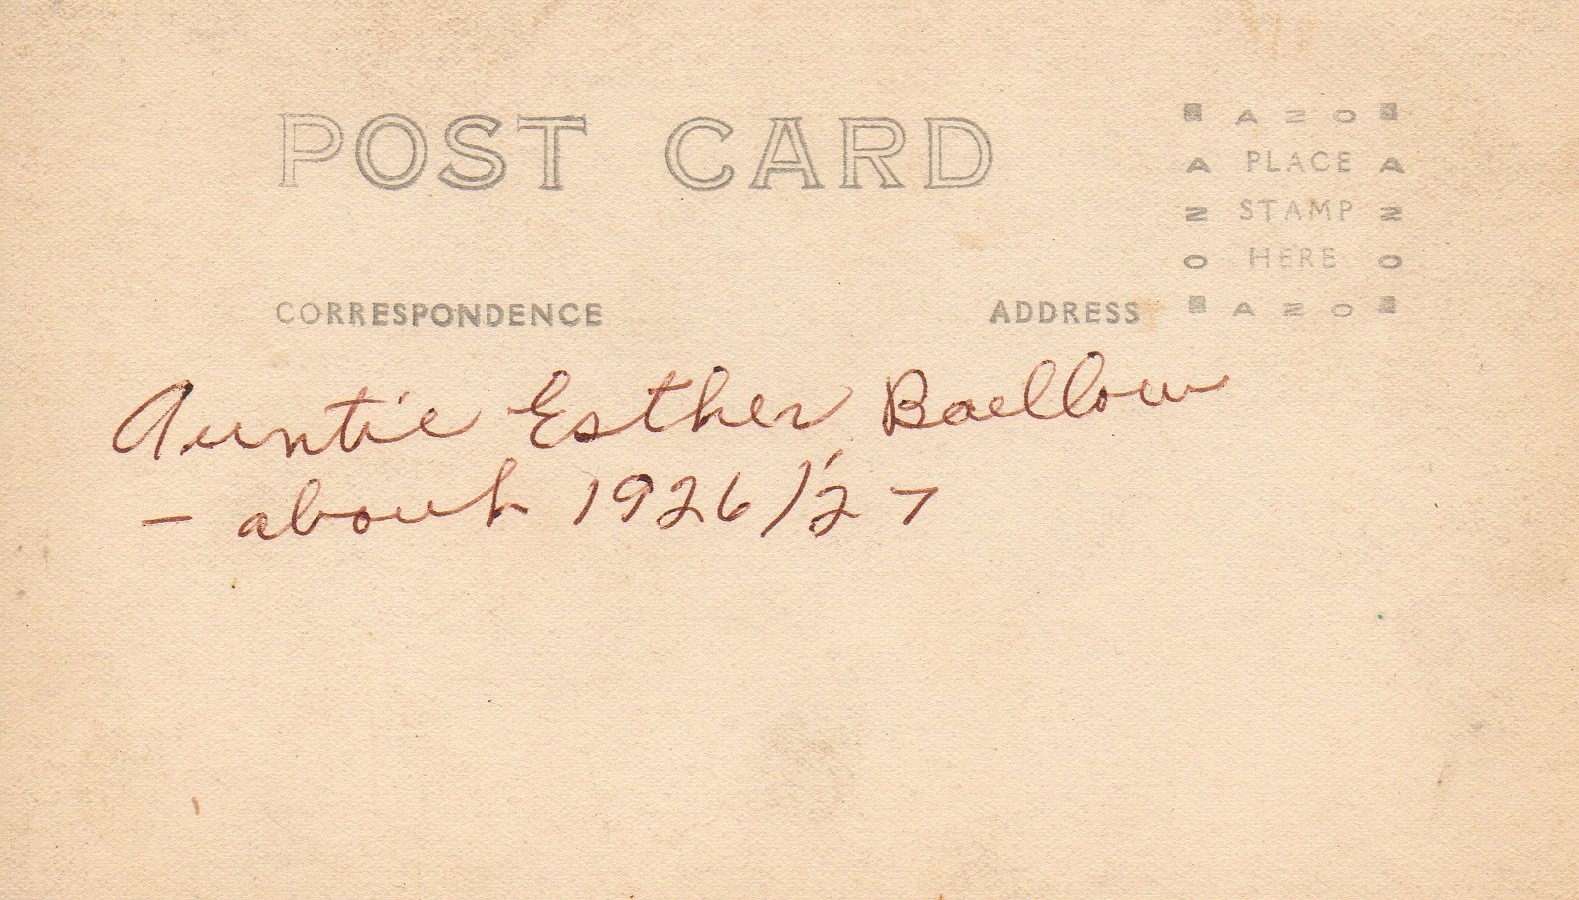 POST CARD
AZO
A PLACE A
Z STAMP Z
O HERE O
AZO
CORRESPONDENCE ADDRESS
Auntie Esther Baellow
- about 1926/'27